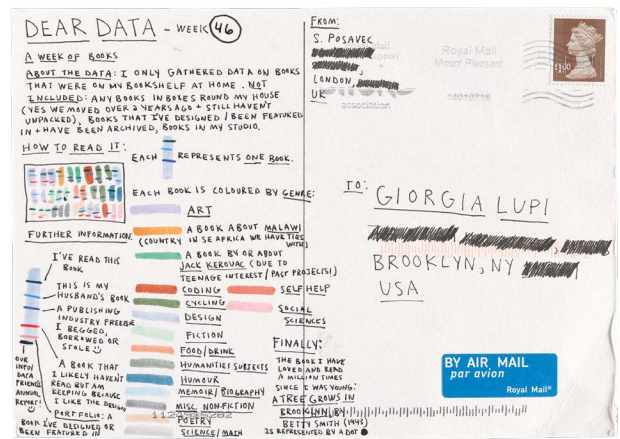 DEAR DATA - WEEK 46
A WEEK OF BOOKS
ABOUT THE DATA: I ONLY GATHERED DATA ON BOOKS
THAT WERE ON MY BOOKSHELF AT HOME. NOT
INCLUDED: ANY BOOKS IN BOXES ROUND MY HOUSE
(YES WE MOVED OVER 2 YEARS AGO + STILL HAVEN'T
UNPACKED), BOOKS THAT I'VE DESIGNED / BEEN FEATURED
IN + HAVE BEEN ARCHIVED, BOOKS IN MY STUDIO.
HOW TO READ IT:
EACH REPRESENTS ONE BOOK.
EACH BOOK IS COLOURED BY GENRE:
ART
A BOOK ABOUT MALAWI
(COUNTRY IN SE AFRICA WE HAVE TIES
WITH)
A BOOK BY OR ABOUT
JACK KEROUAC (DUE TO
TEENAGE INTEREST / PAST PROJECTS!)
CODING
SELF HELP
CYCLING
SOCIAL
SCIENCES
DESIGN
FICTION
FOOD/DRINK
HUMANITIES SUBJECTS
HUMOUR
MEMOIR/BIOGRAPHY
MISC. NON-FICTION
POETRY
SCIENCE/MATH
FURTHER INFORMATION.
I'VE READ THIS
BOOK
THIS IS MY
HUSBAND'S BOOK
A PUBLISHING
INDUSTRY FREEBIE
I BEGGED,
BORROWED OR
STOLE
A BOOK THAT
I LIKELY HAVEN'T
READ BUT AM
KEEPING BECAUSE
I LIKE THE DESIGN
OUR
INFO/
DATA
FRIENDS
ANNUAL
REPORT!
PORTFOLIO: A
BOOK I'VE DESIGNED OR
BEEN FEATURED IN
FINALLY:
THE BOOK I HAVE
LOVED AND READ
A MILLION TIMES
SINCE I WAS YOUNG:
A TREE GROWS IN
BROOKLYN BY
BETTY SMITH (1943)
IS REPRESENTED BY A DOT
FROM:
S. POSAVEC
LONDON,
UK
association
Royal Mail
Mount Pleasant
£1.00
TO:
GIORGIA LUPI
BROOKLYN, NY
USA
BY AIR MAIL
par avion
Royal Mail®